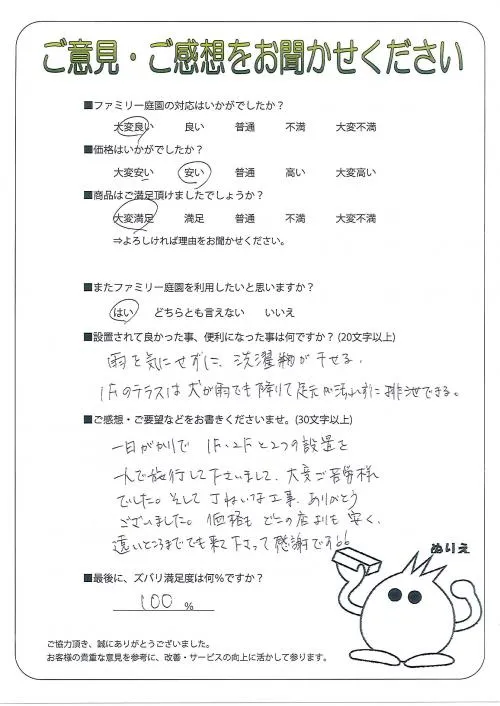 ご意見・ご感想をお聞かせください
■ファミリー庭園の対応はいかがでしたか？
大変良い 良い 普通 不満 大変不満
■価格はいかがでしたか？
大変安い 安い 普通 高い 大変高い
■商品はご満足頂けましたでしょうか？
大変満足 満足 普通 不満 大変不満
⇒よろしければ理由をお聞かせください。
■またファミリー庭園を利用したいと思いますか？
はい どちらとも言えない いいえ
■設置されて良かった事、便利になった事は何ですか？(20文字以上)
雨を気にせずに、洗濯物が干せる。
1Fのテラスは犬が雨でも降りて足元が汚れずに排泄できる。
■ご感想・ご要望などをお書きくださいませ。(30文字以上)
一日がかりで 1F・2Fと2つの設置を
一人で施行して下さいまして、大変ご苦労様
でした。そして きれいな工事、ありがとう
ございました。価格も どこの店よりも 安く、
遠いところまででも来て下さって感謝です。
■最後に、ズバリ満足度は何%ですか？
100 %
ぬりえ
ご協力頂き、誠にありがとうございました。
お客様の貴重な意見を参考に、改善・サービスの向上に活かして参ります。